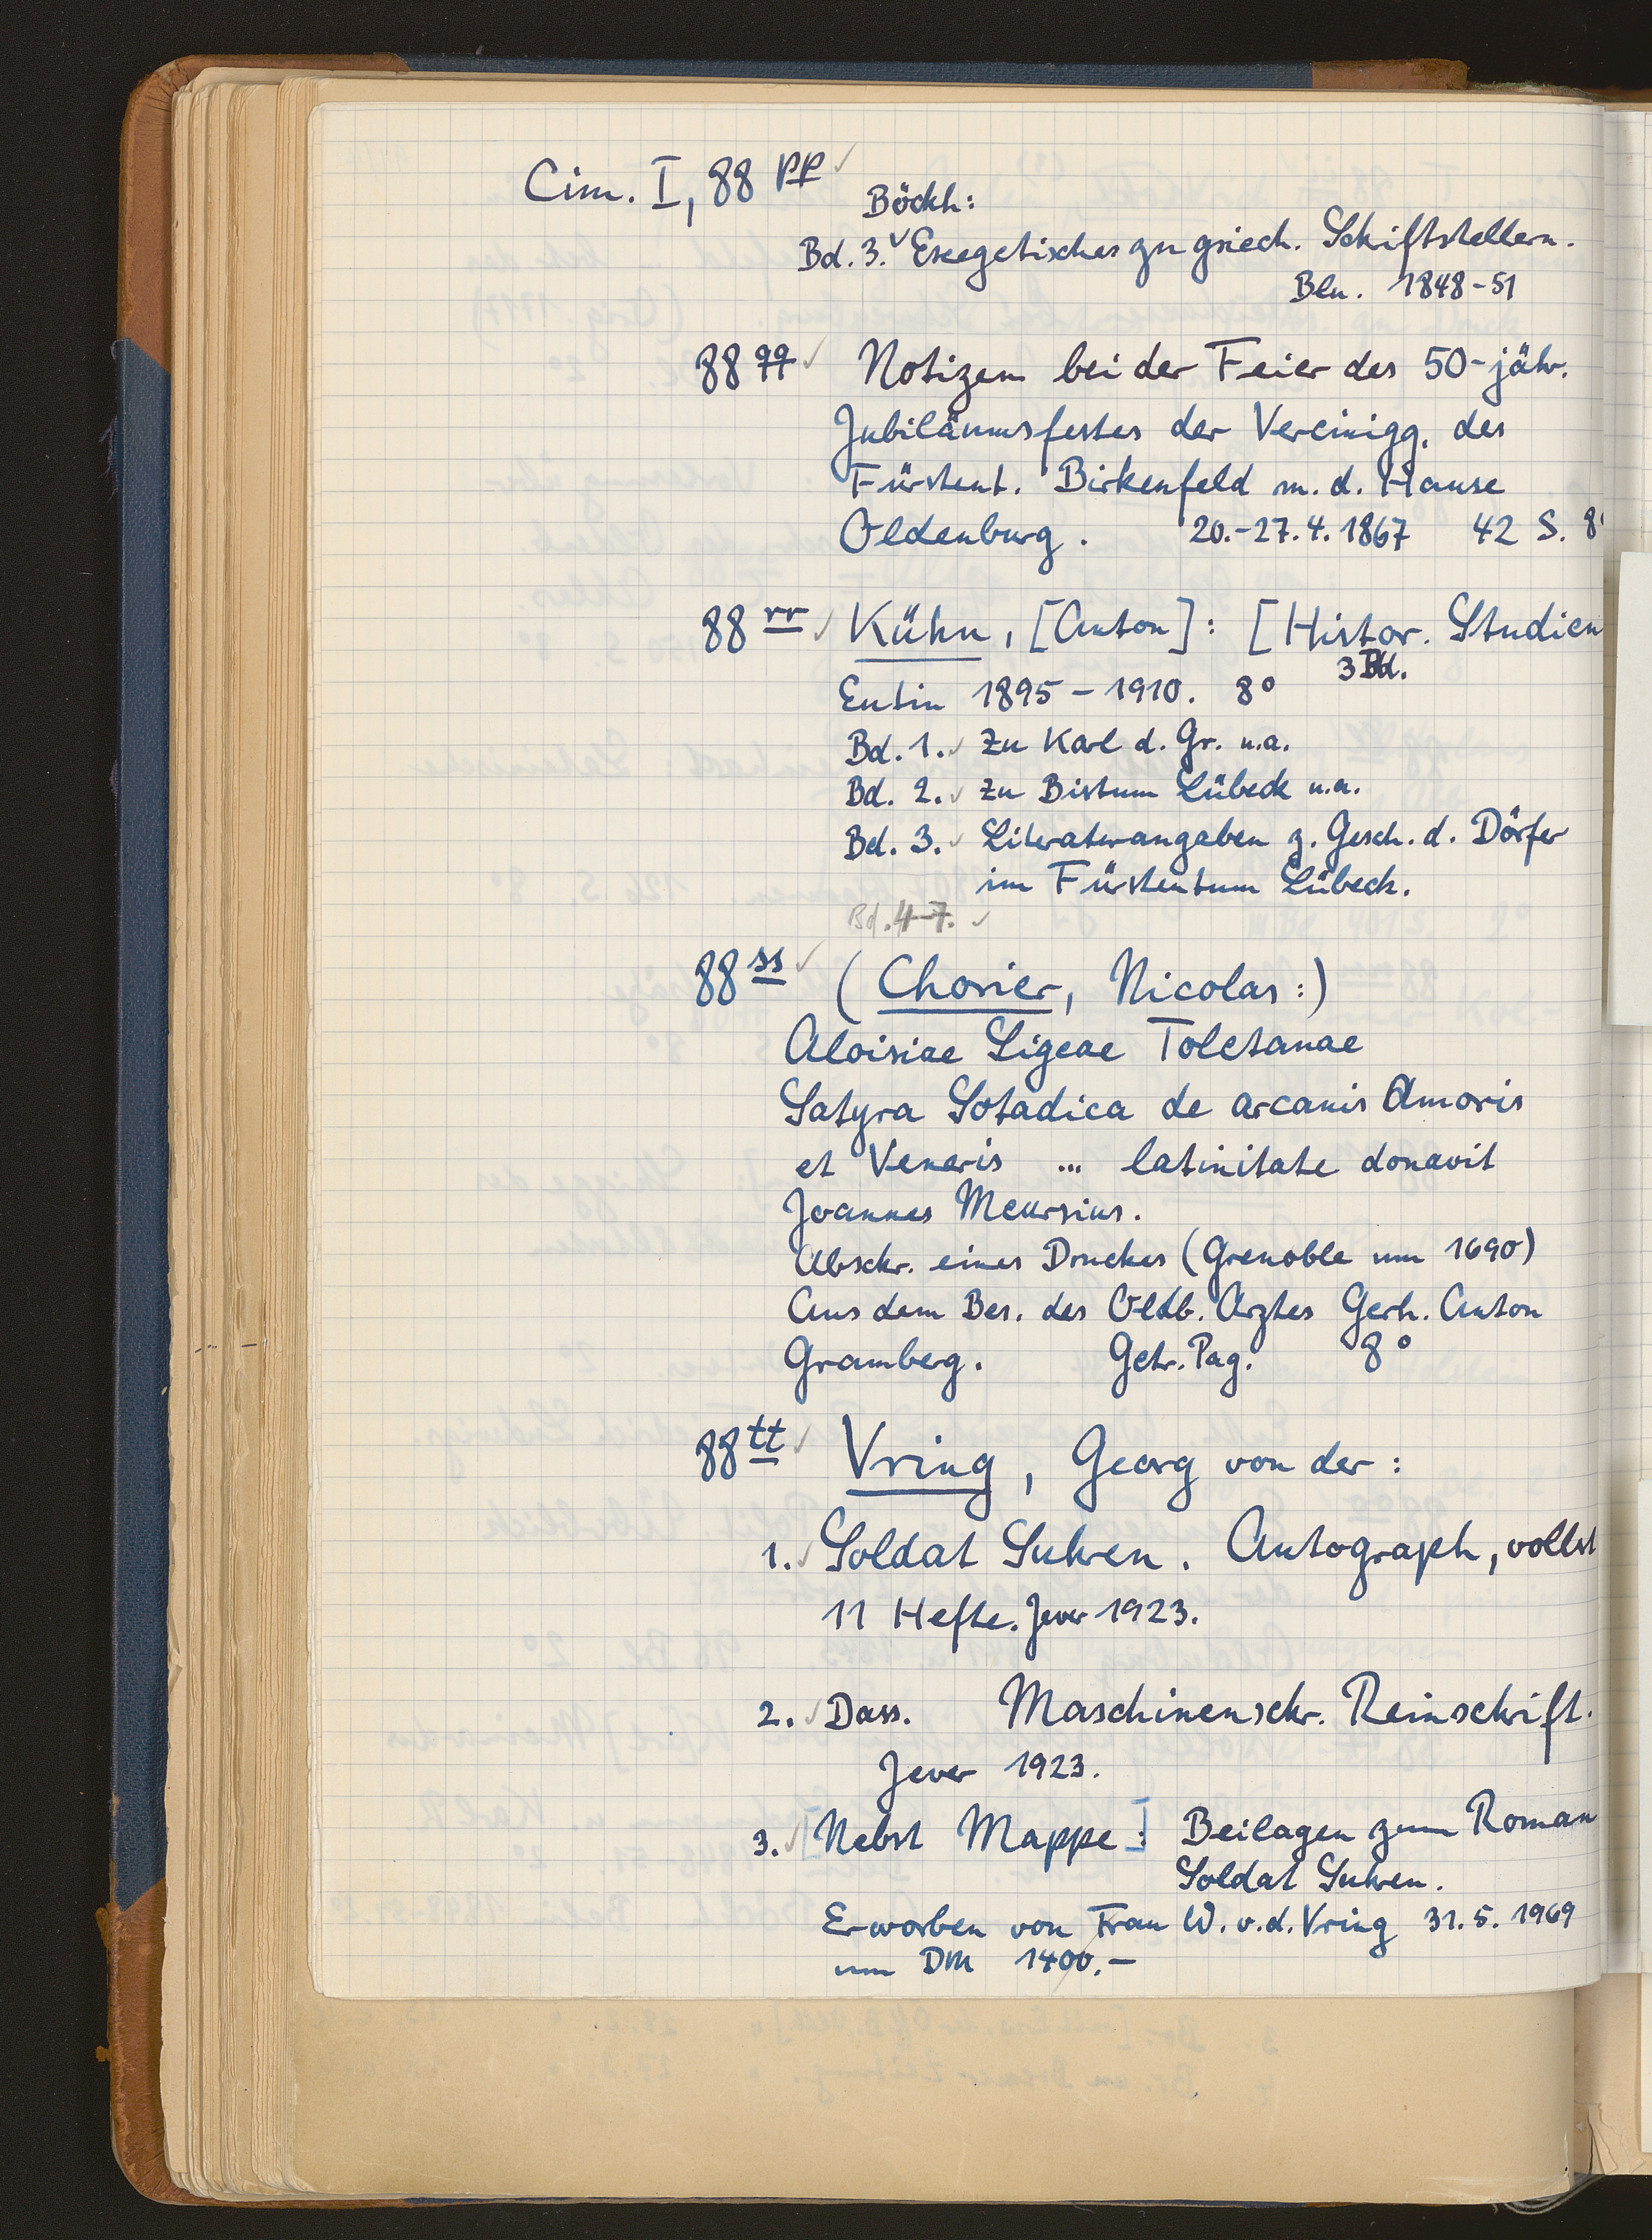 Cim. I, 88 pp ✓
Böckh:
Bd. 3. ✓ Exegetisches zu griech. Schiftstellern.
Bln. 1848-51
88 qq ✓ Notizen bei der Feier des 50-jähr.
Jubiläumsfestes der Vereinigg. des
Fürstent. Birkenfeld m. d. Hause
Oldenburg. 20.-27.4.1867 42 S. 8°
88 rr ✓ Kühn, [Anton]: [Histor. Studien
3 Bd.
Eutin 1895 - 1910. 8°
Bd. 1. ✓ Zu Karl d. Gr. u.a.
Bd. 2. ✓ Zu Bistum Lübeck u.a.
Bd. 3. ✓ Literaturangaben z. Gesch. d. Dörfer
im Fürstentum Lübeck.
Bd. 4-7. ✓
88 ss ✓ (Chorier, Nicolas:)
Aloisiae Sigeae Toletanae
Satyra Sotadica de arcanis Amoris
et Veneris ... latinitate donavit
Joannes Meursius.
Abschr. eines Druckes (Grenoble um 1690)
Aus dem Bes. des Oldb. Arztes Gerh. Anton
Gramberg. Getr. Pag. 8°
88 tt ✓ Vring, Georg von der:
1. ✓ Soldat Suhren. Autograph, vollst
11 Hefte. Jever 1923.
2. ✓ Dass. Maschinenschr. Reinschrift.
Jever 1923.
3. ✓ [Nebst Mappe:] Beilagen zum Roman
Soldat Suhren.
Erworben von Frau W. v. d. Vring 31.5.1969
um DM 1400.-